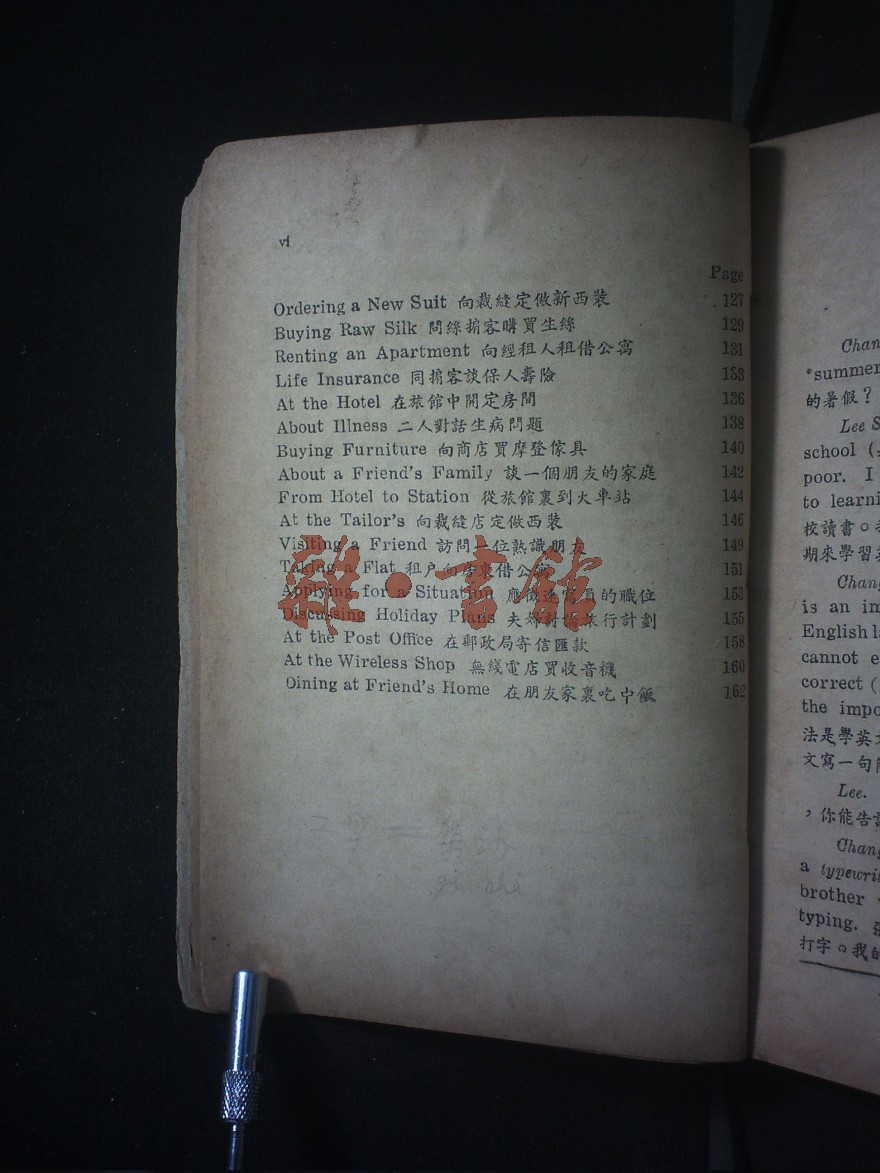 vi
Page
Ordering a New Suit 向裁縫定做新西裝 127
Buying Raw Silk 問絲掮客購買生絲 129
Renting an Apartment 向經租人租借公寓 131
Life Insurance 同掮客談保人壽險 133
At the Hotel 在旅館中開定房間 136
About Illness 二人對話生病問題 138
Buying Furniture 向商店買摩登傢具 140
About a Friend's Family 談一個朋友的家庭 142
From Hotel to Station 從旅館裏到火車站 144
At the Tailor's 向裁縫店定做西裝 146
Visiting a Friend 訪問一位熟識朋友 149
Taking a Flat 租户向房東借公寓 151
Applying for a Situation 應徵 員的職位 153
Discussing Holiday Plans 夫婦討論旅行計劃 155
At the Post Office 在郵政局寄信匯款 158
At the Wireless Shop 無綫電店買收音機 160
Dining at Friend's Home 在朋友家裏吃中飯 162
雜·書館
Chan
"summer
的暑假?
Lee S
school (
poor. I
to learni
校讀書。
期來學習
Chang
is an im
English la
cannot e
correct (
the impo
法是學英
文寫一句
Lee.
,你能告
Chang
a typewri
brother
typing.
打字。我的